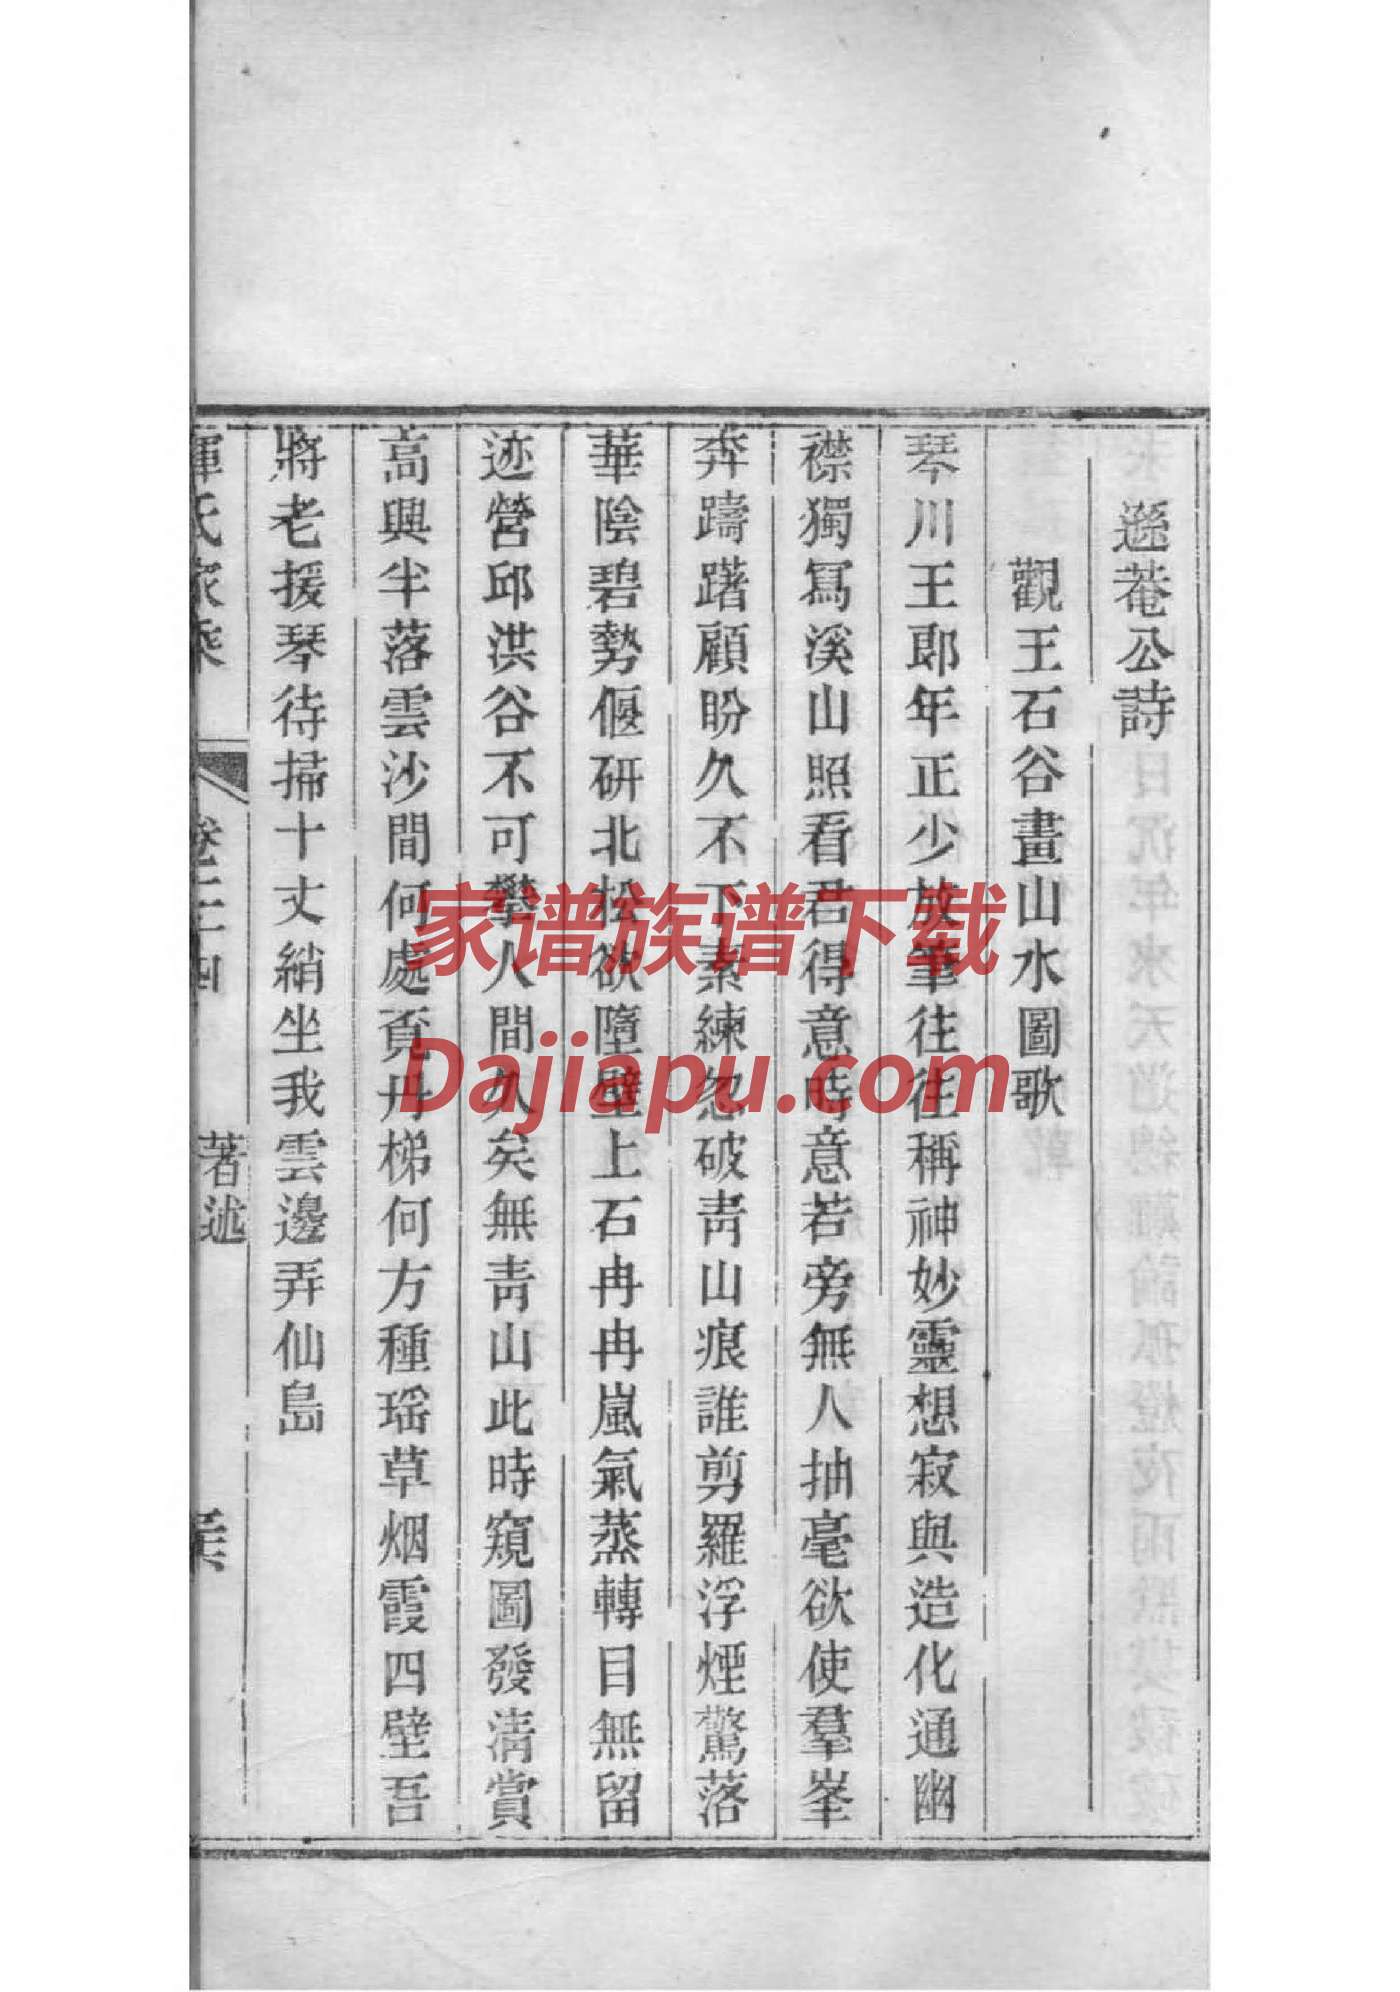 遜菴公詩
觀王石谷畫山水圖歌
琴川王郎年正少放筆往往稱神妙靈想寂與造化通幽
襟獨寫溪山照看君得意時意若旁無人抽毫欲使羣峯
奔躊躇顧盼久不下素練忽破靑山痕誰剪羅浮煙驚落
華陰碧勢偃研北松欲墮壁上石冉冉嵐氣蒸轉目無留
迹營邱洪谷不可攀人間久矣無靑山此時窺圖發淸賞
高興半落雲沙間何處覓丹梯何方種瑶草烟霞四壁吾
將老援琴待掃十丈綃坐我雲邊弄仙島
惲氏家乘 卷二十四 著述
家谱族谱下载
Dajiapu.com